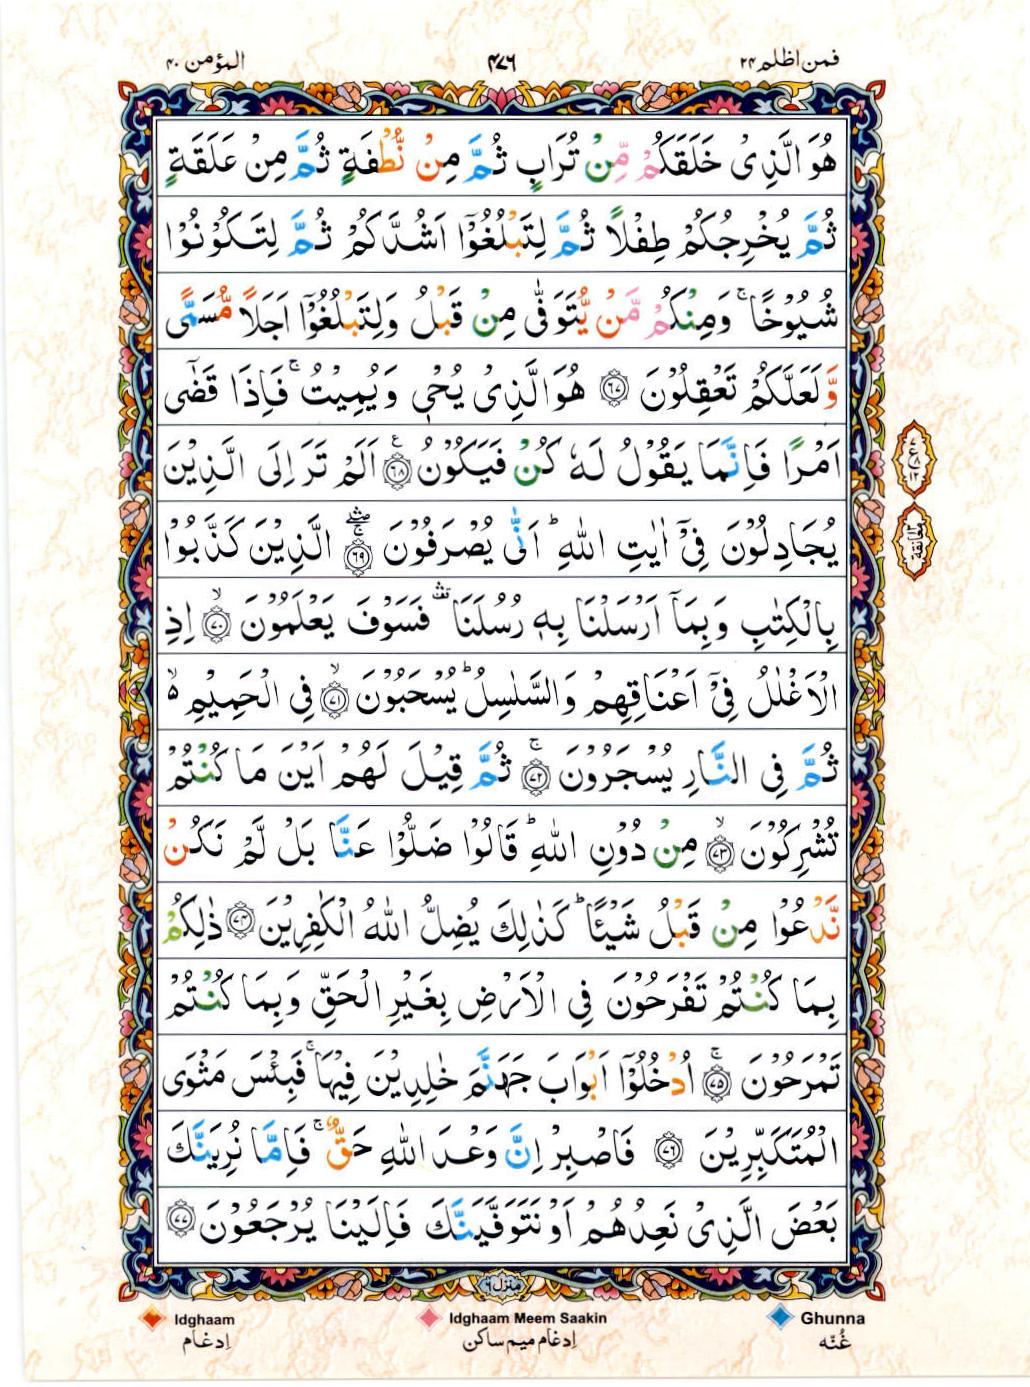 فمن اظلم ۲۴
۴۷۶
المؤمن ۴۰
هُوَ الَّذِیْ خَلَقَكُمْ مِّنْ تُرَابٍ ثُمَّ مِنْ نُّطْفَةٍ ثُمَّ مِنْ عَلَقَةٍ
ثُمَّ یُخْرِجُكُمْ طِفْلًا ثُمَّ لِتَبْلُغُوْۤا اَشُدَّكُمْ ثُمَّ لِتَكُوْنُوْا
شُیُوْخًا ۚ وَمِنْكُمْ مَّنْ یُّتَوَفّٰی مِنْ قَبْلُ وَلِتَبْلُغُوْۤا اَجَلًا مُّسَمًّی
وَّلَعَلَّكُمْ تَعْقِلُوْنَ ﴿۶۷﴾ هُوَ الَّذِیْ یُحْیٖ وَیُمِیْتُ ۚ فَاِذَا قَضٰۤی
اَمْرًا فَاِنَّمَا یَقُوْلُ لَهٗ كُنْ فَیَكُوْنُ ﴿۶۸﴾ ع اَلَمْ تَرَ اِلَی الَّذِیْنَ
یُجَادِلُوْنَ فِیْۤ اٰیٰتِ اللّٰهِ ؕ اَنّٰی یُصْرَفُوْنَ ﴿۶۹﴾ الَّذِیْنَ كَذَّبُوْا
بِالْكِتٰبِ وَبِمَاۤ اَرْسَلْنَا بِهٖ رُسُلَنَا ۛ فَسَوْفَ یَعْلَمُوْنَ ﴿۷۰﴾ ۙ اِذِ
الْاَغْلٰلُ فِیْۤ اَعْنَاقِهِمْ وَالسَّلٰسِلُ ؕ یُسْحَبُوْنَ ﴿۷۱﴾ ۙ فِی الْحَمِیْمِ ۙ۵
ثُمَّ فِی النَّارِ یُسْجَرُوْنَ ﴿۷۲﴾ ۚ ثُمَّ قِیْلَ لَهُمْ اَیْنَ مَا كُنْتُمْ
تُشْرِكُوْنَ ﴿۷۳﴾ ۙ مِنْ دُوْنِ اللّٰهِ ؕ قَالُوْا ضَلُّوْا عَنَّا بَلْ لَّمْ نَكُنْ
نَّدْعُوْا مِنْ قَبْلُ شَیْـًٔا ؕ كَذٰلِكَ یُضِلُّ اللّٰهُ الْكٰفِرِیْنَ ﴿۷۴﴾ ذٰلِكُمْ
بِمَا كُنْتُمْ تَفْرَحُوْنَ فِی الْاَرْضِ بِغَیْرِ الْحَقِّ وَبِمَا كُنْتُمْ
تَمْرَحُوْنَ ﴿۷۵﴾ ۚ اُدْخُلُوْۤا اَبْوَابَ جَهَنَّمَ خٰلِدِیْنَ فِیْهَا ۚ فَبِئْسَ مَثْوَی
الْمُتَكَبِّرِیْنَ ﴿۷۶﴾ فَاصْبِرْ اِنَّ وَعْدَ اللّٰهِ حَقٌّ ۚ فَاِمَّا نُرِیَنَّكَ
بَعْضَ الَّذِیْ نَعِدُهُمْ اَوْ نَتَوَفَّیَنَّكَ فَاِلَیْنَا یُرْجَعُوْنَ ﴿۷۷﴾
منزل ۶
Idghaam
اِدغَام
Idghaam Meem Saakin
اِدغَام میم ساکن
Ghunna
غُنّه